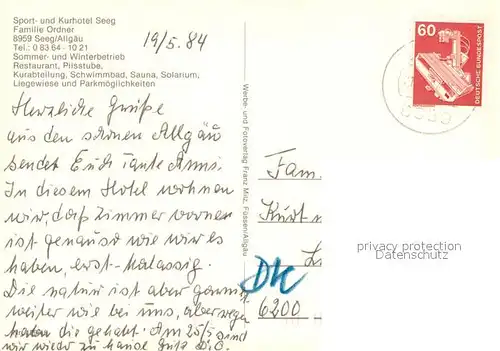 Sport- und Kurhotel Seeg
Familie Ordner
8959 Seeg/Allgäu
Tel.: 0 83 64 - 10 21
Sommer- und Winterbetrieb
Restaurant, Pilsstube,
Kurabteilung, Schwimmbad, Sauna, Solarium,
Liegewiese und Parkmöglichkeiten
19/5. 84
Herzliche Grüße
aus den schönen Allgäu
sendet Euch Tante Anni.
In diesem Hotel wohnen
wir, daß Zimmer vornen
ist genauso wie wir es
haben, erst-klassig.
Die natur ist aber
weiter wie bei uns, aber wegen
die gehabt. Am 25/5 sind
wir wieder zu hause
Werbe- und Fotoverlag Franz Milz, Füssen/Allgäu
60
DEUTSCHE BUNDESPOST
Fam.
Kurt
6200
DK
privacy protection
Oldthing